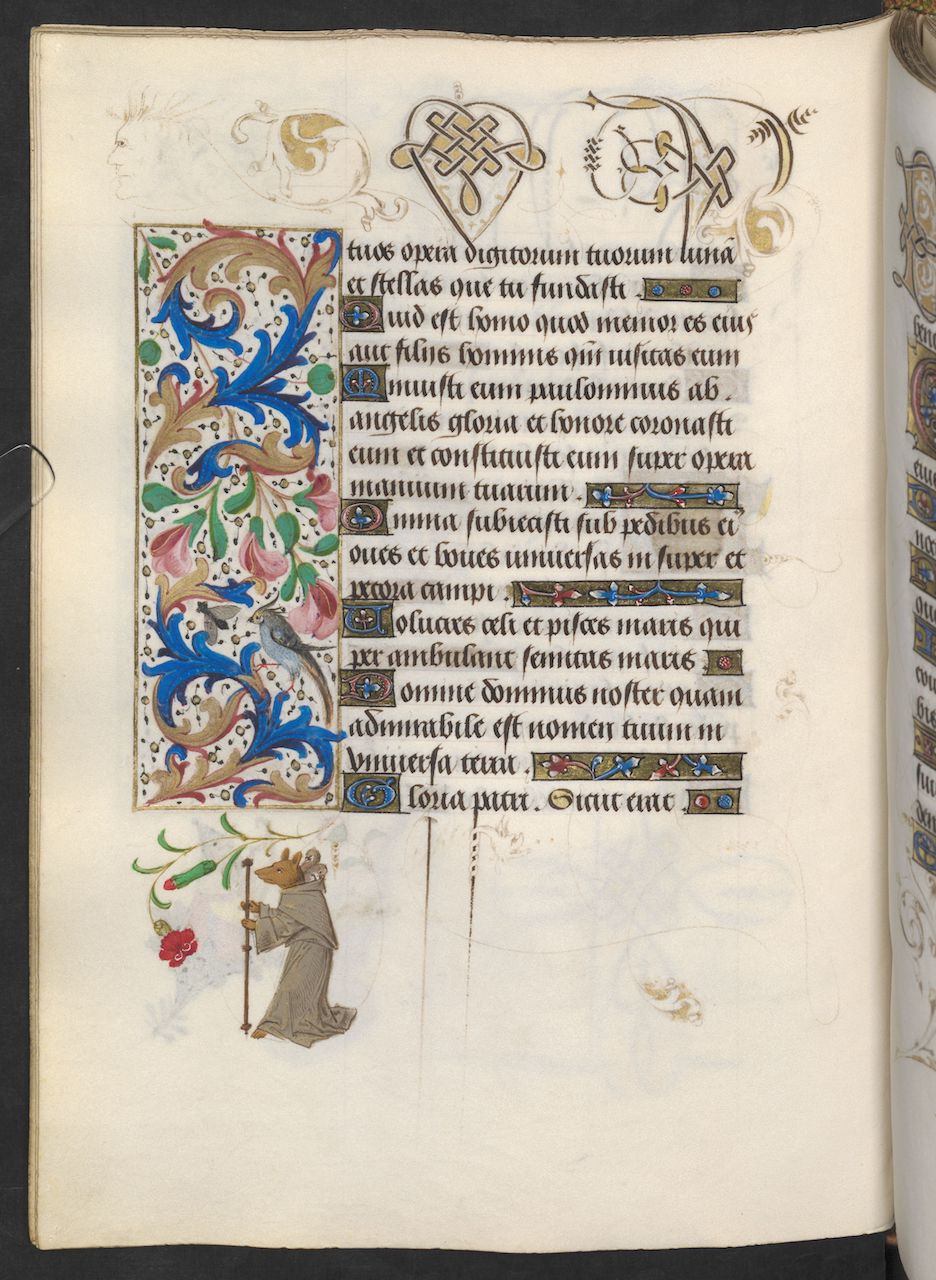 tuos opera digitorum tuorum lunā
et stellas que tu fundasti .
Quid est homo quod memor es eius
aut filius hominis qm̄ uisitas eum
Minuisti eum paulominus ab .
angelis gloria et honore coronasti
eum et constituisti eum super opera
manuum tuarum .
Omnia subiecisti sub pedibus ei᾿
oues et boues uniuersas in super et
pecora campi .
Uolucres celi et pisces maris qui
per ambulant semitas maris
Domine dominus noster quam
admirabile est nomen tuum in
vniuersa terra .
Gloria patri . Sicut erat .